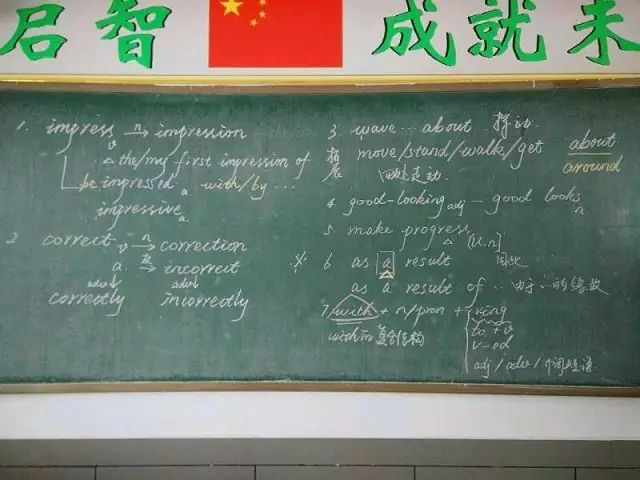 启智 成就未
1. impress n→ impression
v
△ the/my first impression of
be impressed a with/by ...
impressive a.
2 correct n→ correction
v
a. 反→ incorrect
adv↓ adv↓
correctly incorrectly
3. wave ... about 挥动
拓展 move/stand/walk/get about
around
四处走动
4 good-looking adj – good looks n
5. make progress [U.n]
△
※ 6 as a result 因此
as a result of ... 由于...的缘故
7 with + n/pron + v-ing
to + v
v-ed
adj/adv/介词短语
with复合结构